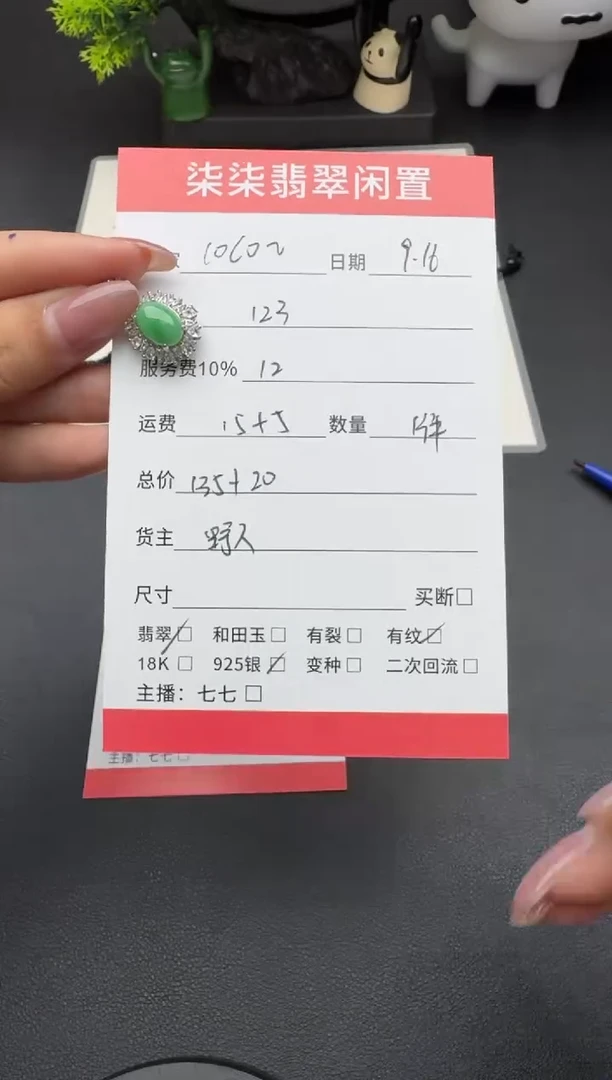 柒柒翡翠闲置
日期 9.16
123
服务费10% 12
运费 15+5 数量 1件
总价 135+20
货主 野人
尺寸 买断□
翡翠☑ 和田玉□ 有裂□ 有纹☑
18K□ 925银☑ 变种□ 二次回流□
主播：七七□
主播：七七□